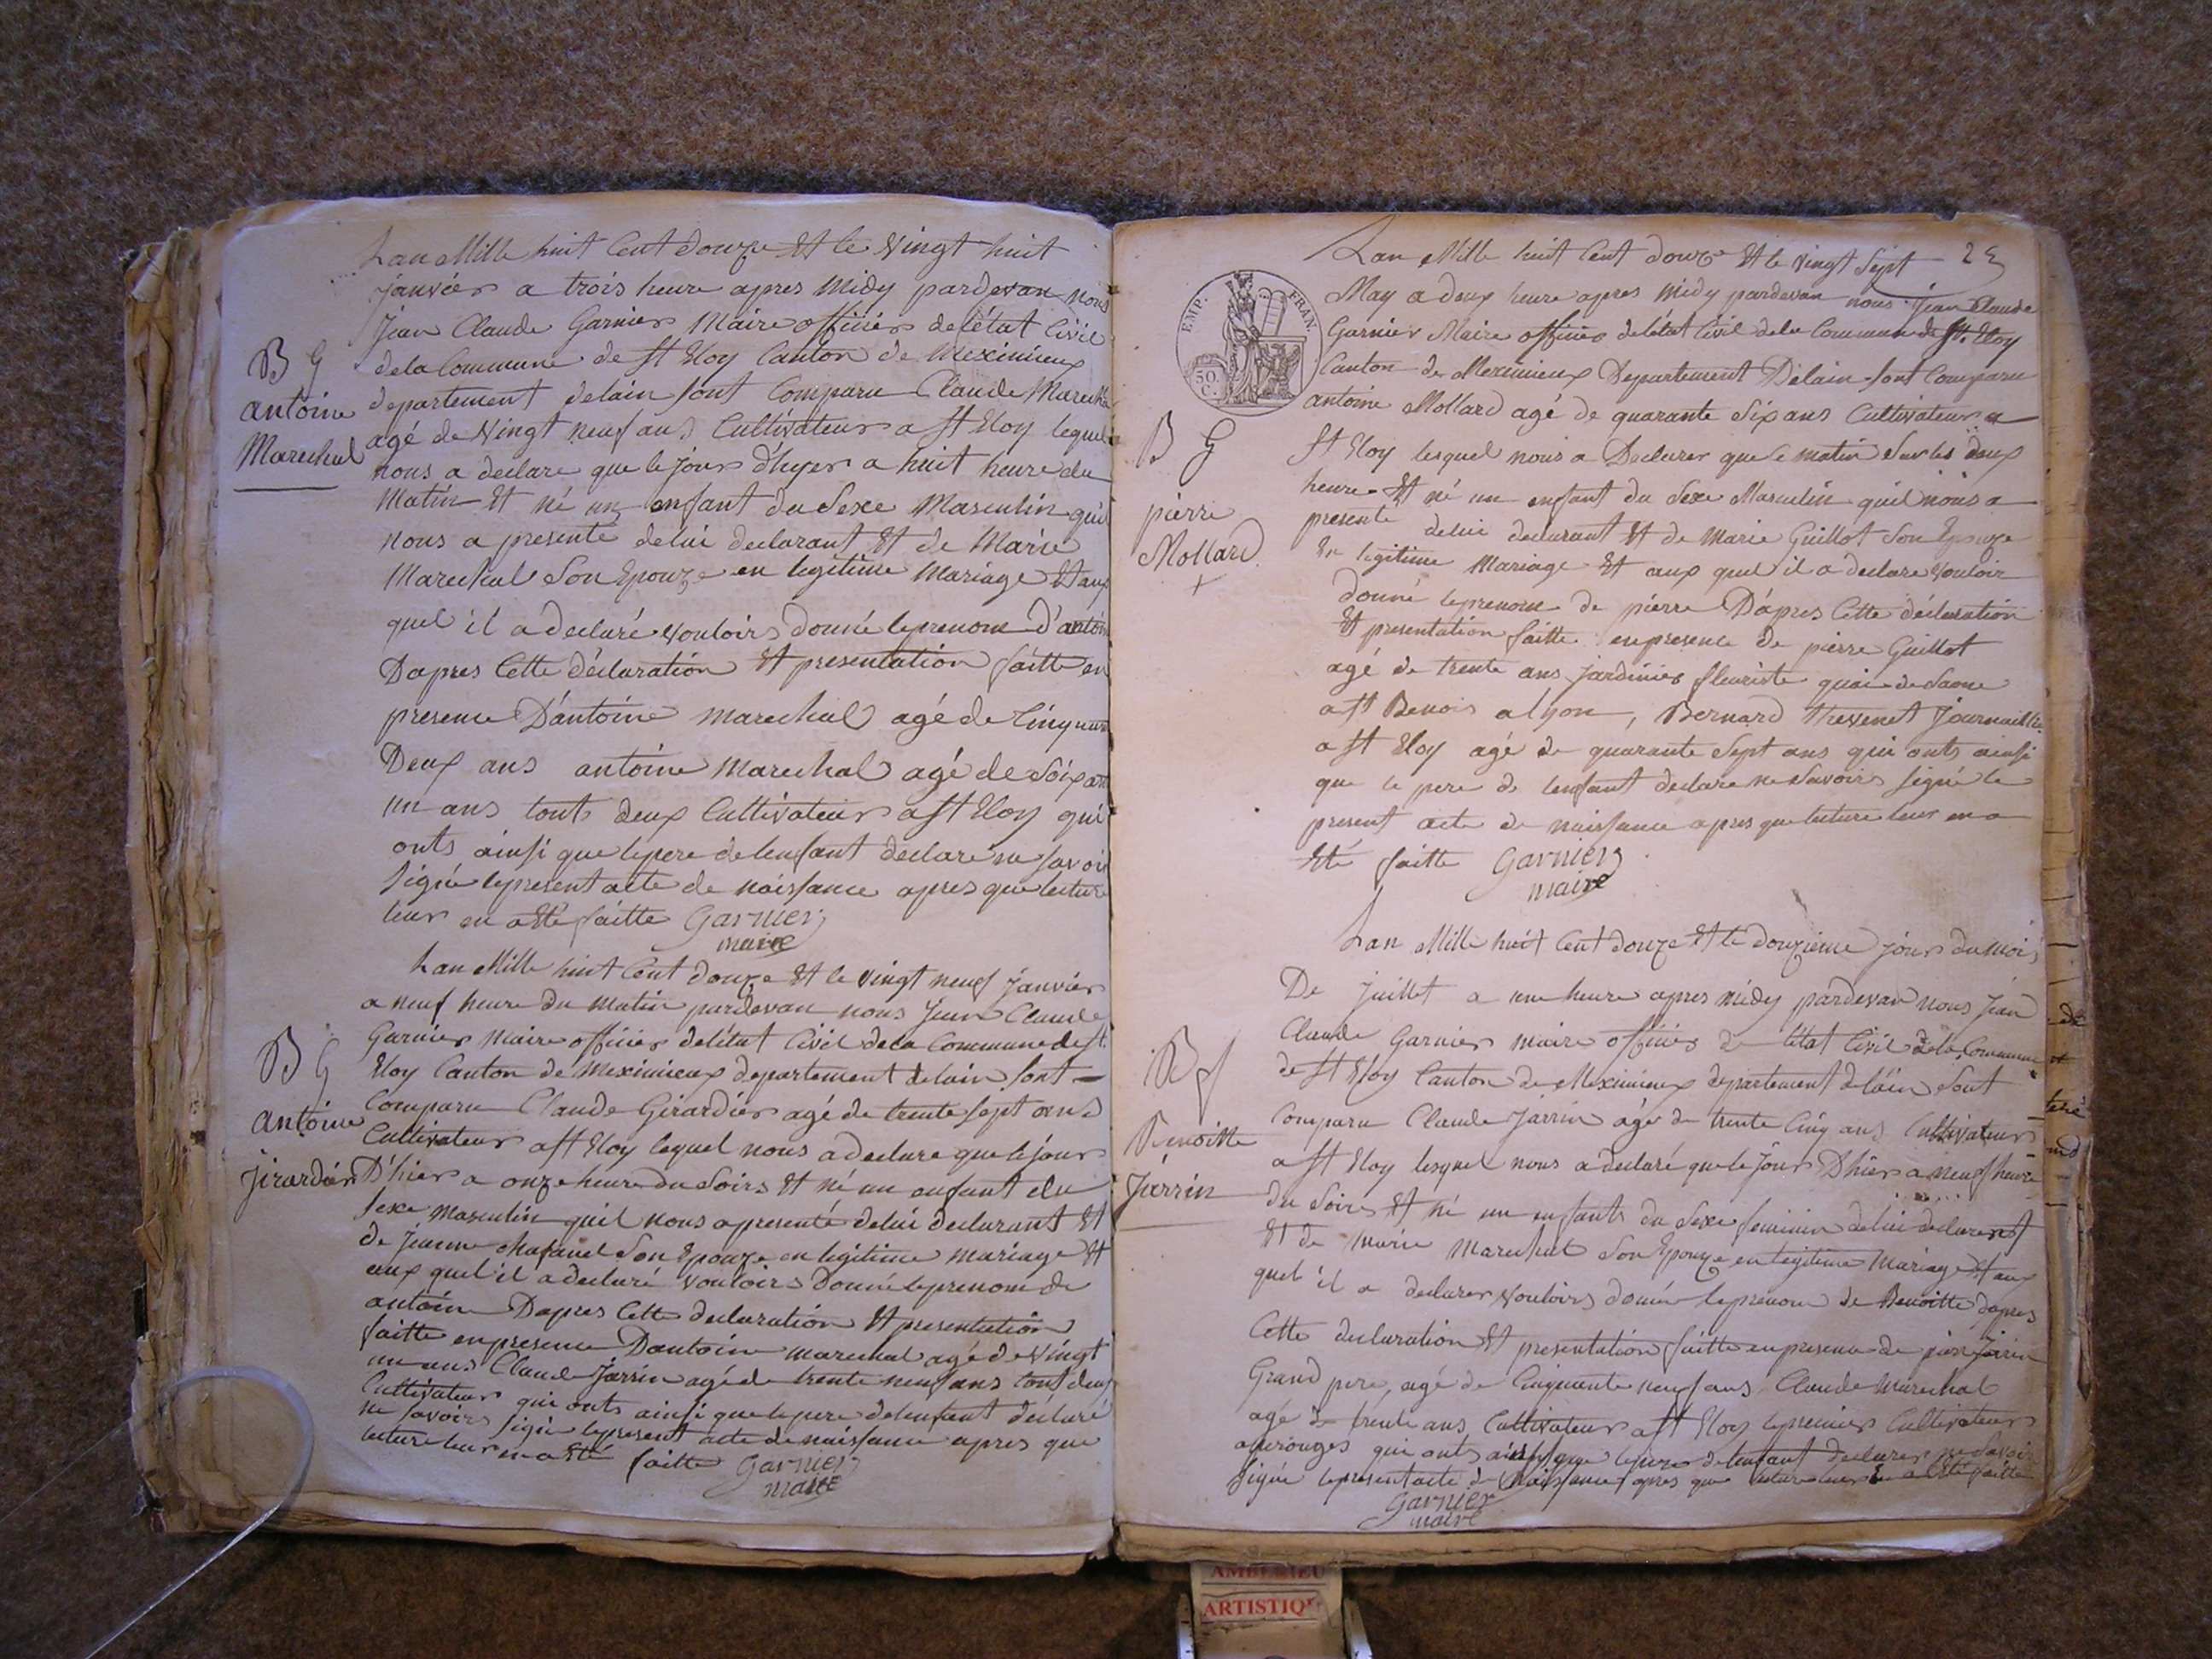 Lan Mille huit Cent douze Et le Vingt huit
janvier a trois heure apres Midy pardevan nous
Jean Claude Garnier Maire officier de l'état Civil
de la Commune de St Eloy Canton de Meximieux
departement delain sont Comparu Claude Marechal
agé de Vingt neuf ans Cultivateur a St Eloy lequel
nous a declare que le jour d'hyer a huit heure du
Matin Et né un enfant du Sexe Masculin quil
nous a presenté delui declarant Et de Marie
Marechal Son Epouze en legitime Mariage Et aux
quel il a declaré Vouloirs donné leprenom D'antoin
Dapres Cette déclaration Et presentation faitte en
presence D'antoine marechal agé de Cinquan
Deux ans antoine marechal agé de Soixan
un ans tout deux Cultivateur a St Eloy qui
onts ainsi que lepere de lenfant declare ne savoir
Signé lepresent acte de naissance apres que lecture
leur en a Eté faitte Garnier
maire
B G
antoine
Marechal
Lan Mille huit Cent douze Et le Vingt neuf Janvier
a neuf heure du matin pardevan nous Jean Claude
Garnier Maire officier delétat Civil dela Commune de St
Eloy Canton de Meximieux departement delain sont
Comparu Claude Girardier agé de trente sept ans
Cultivateur a St Eloy lequel nous a declare que le jour
D'hier a onze heure du Soirs Et né un enfant du
Sexe masculin quil nous a presenté delui declarant Et
de Jeanne Son Epouze en legitime mariage Et
aux quel il a declaré Vouloirs donné leprenom de
antoine Dapres Cette declaration Et presentation
faitte enpresence Dantoine marechal agé de Vingt
un ans Claude Jarrin agé de trente neuf ans tout deux
Cultivateur qui onts ainsi que lepere delenfant declaré
ne savoirs signé lepresent acte de naissance apres que
lecture leur en a Eté faitte Garnier
maire
B G
antoine
jirardier
25
Lan Mille huit Cent douze Et le Vingt Sept
May a deux heure apres Midy pardevan nous Jean Claude
Garnier Maire officier delétat Civil dela Commune de St. Eloy
Canton de Meximieux Departement Delain sont Comparu
antoine Mollard agé de quarante Six ans Cultivateur a
St Eloy lesquel nous a Declarer que le matin Sur les deux
heure Et né un enfant du Sexe Masculin quil nous a
presenté delui declarant Et de Marie Guillot Son Epouze
En legitime Mariage Et aux quel il a declare Vouloir
donné leprenom de pierre D'apres Cette déclaration
Et presentation faitte enpresence de pierre Guillot
agé de trente ans Jardinier fleuriste quai de Saone
a St Benois a lyon, Bernard Thevenet Journaillier
a St Eloy agé de quarante Sept ans qui onts ainsi
que le pere de lenfant declare ne Savoirs signé le
present acte de naissance apres que lecture leur en a
Eté faitte Garnier
maire
EMP. FRAN.
50 C.
B G
pierre
Mollard
+
Lan Mille huit Cent douze Et le douzieme jour du mois
De Juillet a une heure apres midy pardevan nous Jean
Claude Garnier maire officier de létat Civil dela Commune
de St Eloy Canton de Meximieux departement delain Sont
Comparu Claude Jarrin agé de trente Cinq ans Cultivateur
a St Eloy lesquel nous a declaré que le Jour D'hier a neuf heure
du Soirs Et né un enfants du Sexe feminin delui declarant
Et de Marie Marechal Son Epouze en legitime Mariage Et aux
quel il a declarer Vouloirs donné leprenom de Benoitte dapres
Cette declaration Et presentation faitte enpresence de Jarrin
Grand pere, agé de Cinquante neuf ans Claude Marechal
agé de trente ans, Cultivateur a St Eloy lepremier Cultivateur
qui onts ainsi que lepere delenfant declarer ne Savoir
Signé lepresent acte de Naissance apres que lecture leur en a Eté faitte
Garnier
maire
Benoitte
Jarrin
AMBERIEU
ARTISTIQ